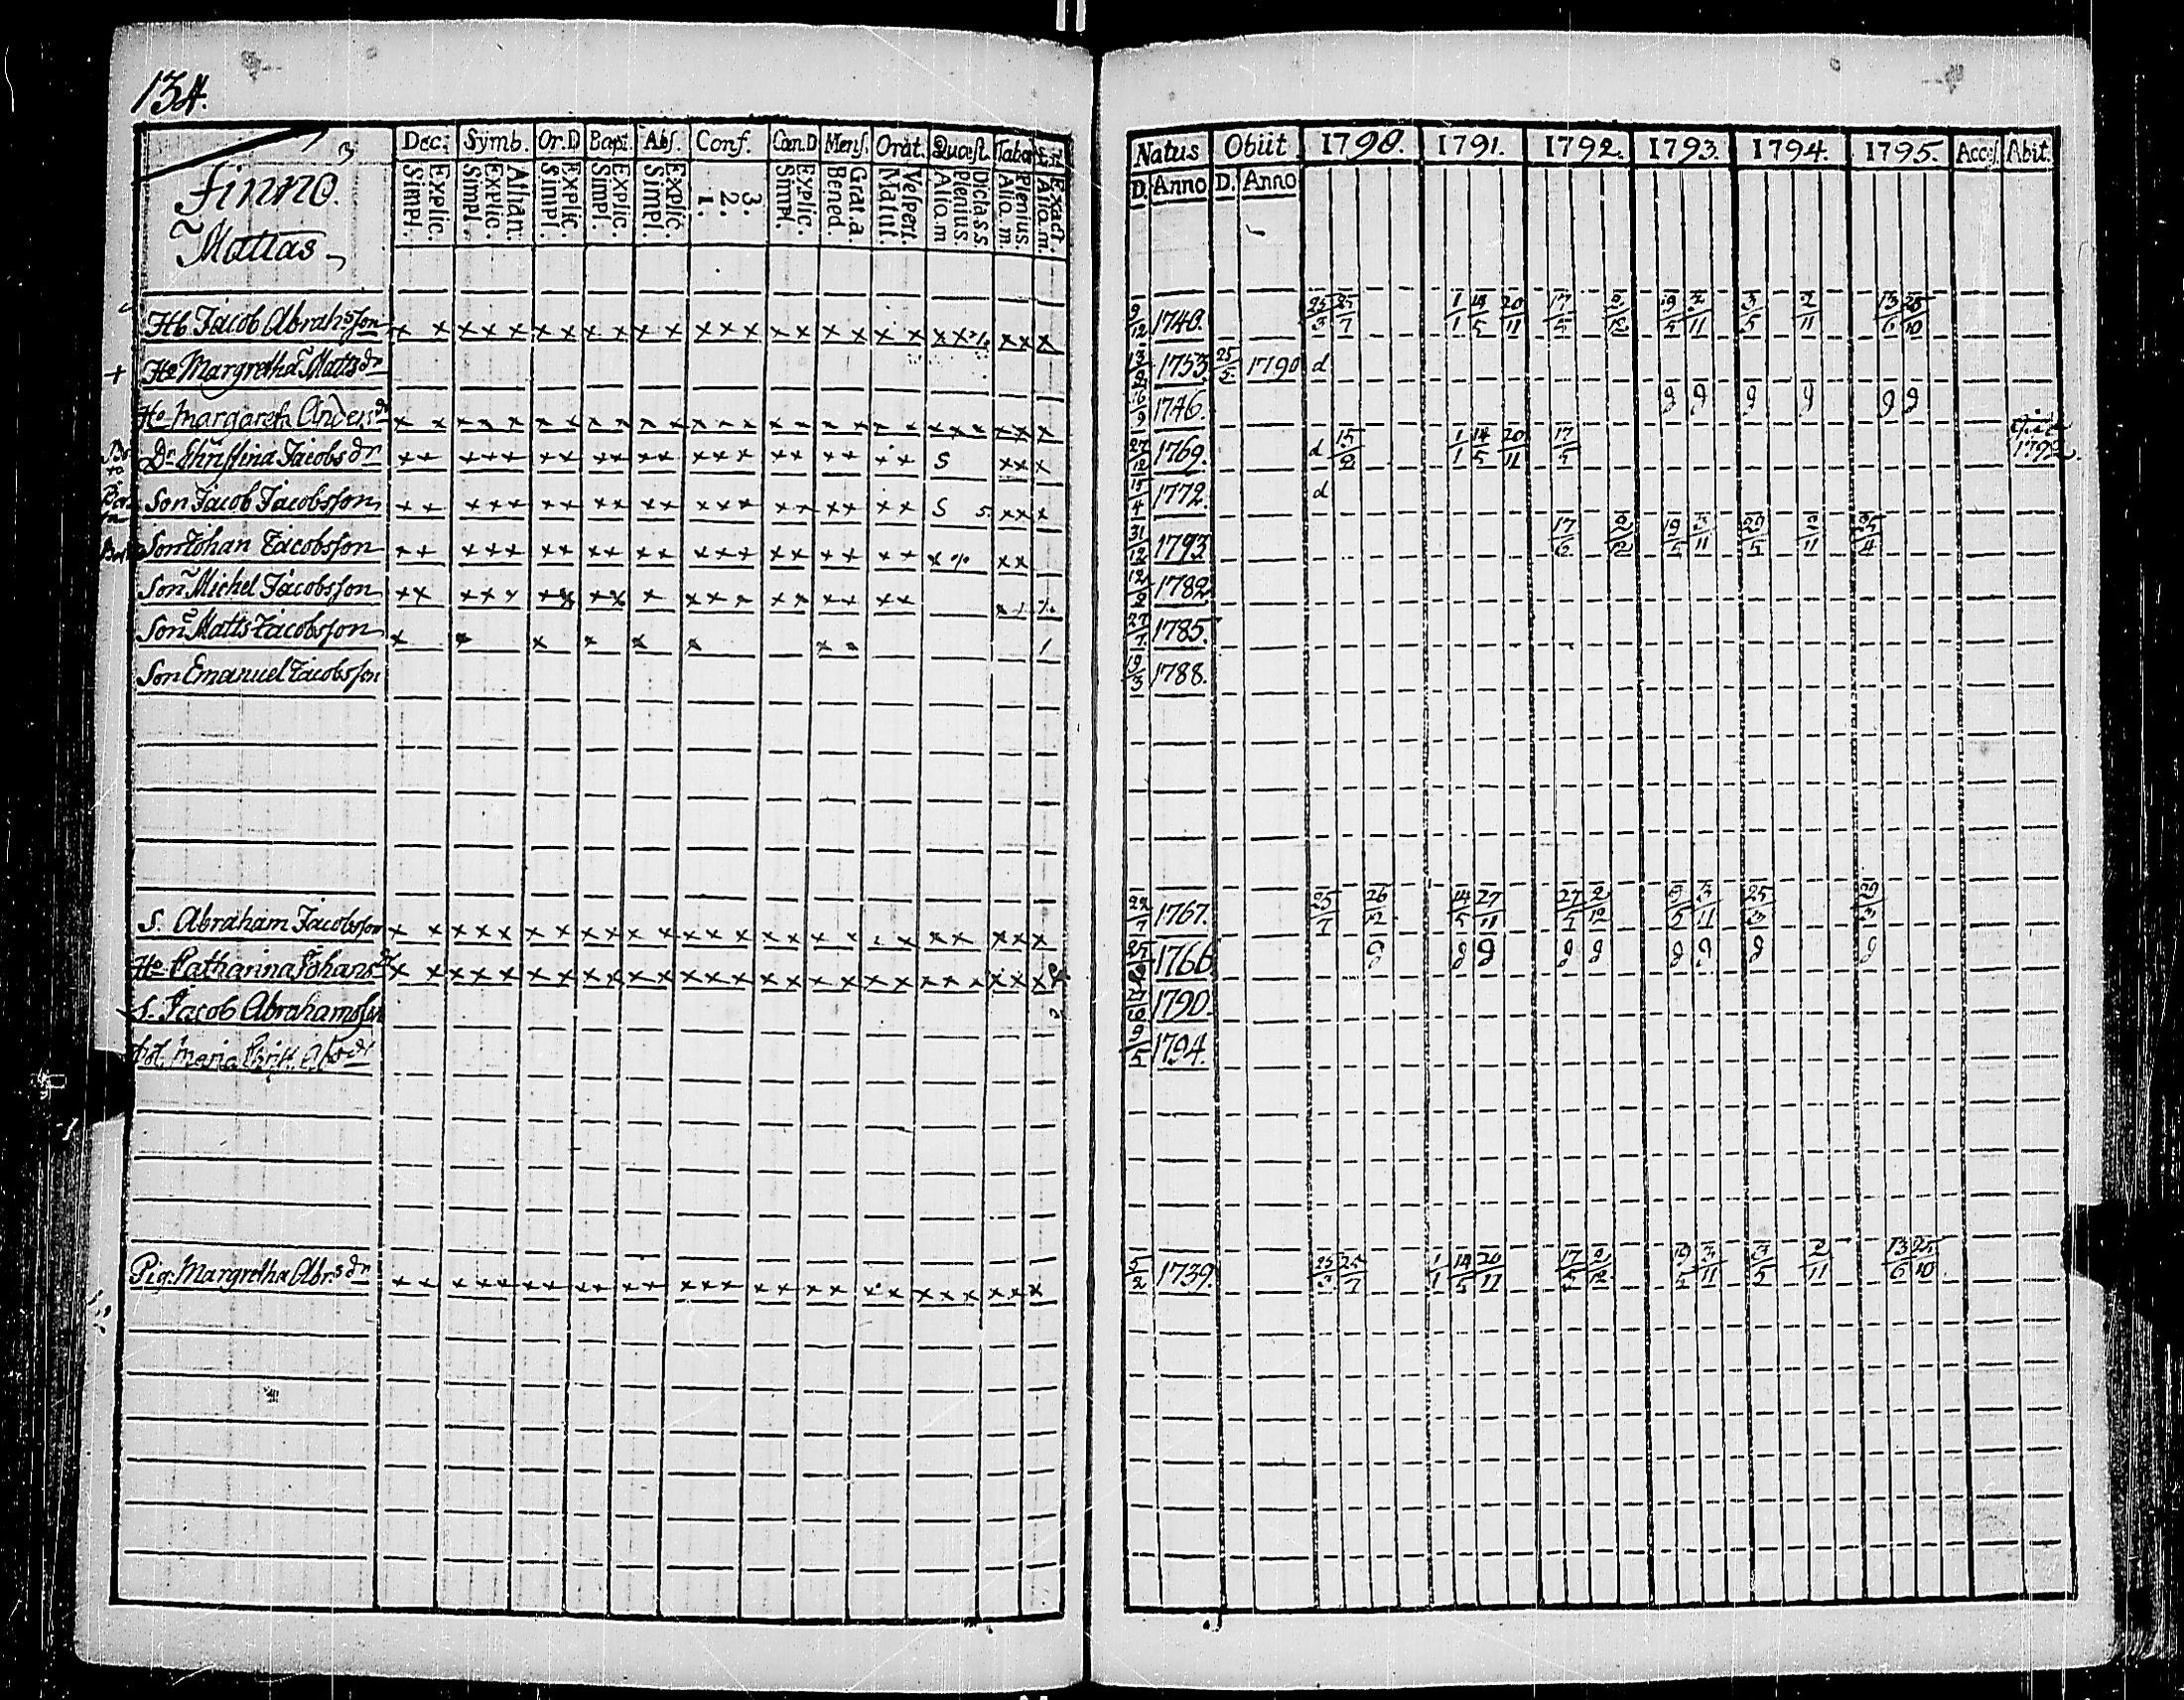 134.
Dec: Symb. Or.D Bapt. Abs. Conf. Cœn.D Mens. Orat. Quæst. Tabœ
Finno.
Mattas
Simpl. Explic. Simpl. Explic. Athan. Simpl. Explic. Simpl. Explic. Simpl. Explic. 1. 2. 3. Simpl. Explic. Bened. Grat.a. Matut. Vespert. Alio.m Plenius Dicta s.s. Alio.m. Plenius. Alio.m. Exact.
Natus Obiit 1790. 1791. 1792. 1793. 1794. 1795. Acces. Abit.
D. Anno D. Anno
Hb Jacob Abrahsson x x x x x x x x x x x x x x x x x x x x x x x x x x 9/12 1740. 25/3 25/7 1/1 14/5 20/11 17/5 2/12 19/5 3/11 3/5 2/11 13/6 25/10
+ Hu Margretha Matts dr 1753 25/5 1790 d
Ho Margareth Anders dr x x x x x x x x x x x x x x x x x x x x x x x x x x x 1746. g g g g g g
Dr Christina Jacobs dr x x x x x x x x x x x x x x x x x x x x S x x x 27/12 1769. d 15/2 1/1 14/5 20/11 17/5 1792.
Son Jacob Jacobsson x x x x x x x x x x x x x x x x x x x x S S x x x 15/4 1772. d
Son Johan Jacobsson x x x x x x x x x x x x x x x x x x x x x x x 31/12 1793 17/6 2/12 19/5 3/11 29/5 2/11 25/4
Son Michel Jacobsson x x x x x x x x x x x x x x x x x x x x 1782
Son Matts Jacobsson x x x x x x x x 27/7 1785.
Son Emanuel Jacobsson 19/3 1788.
S. Abraham Jacobsson x x x x x x x x x x x x x x x x x x x x x x x x x 22/7 1767. 25/7 26/12 14/5 27/11 27/5 2/12 9/5 3/11 25/3 29/3
Ho Catharina Johans dr x x x x x x x x x x x x x x x x x x x x x x x x x x 1766 g g g g g g g g g
S. Jacob Abrahamsson 27/10 1790.
Dot. Maria 9/5 1794.
Pig. Margretha Abrs dr x x x x x x x x x x x x x x x x x x x x x x x x x x 5/2 1739. 25/3 25/7 1/1 14/5 20/11 17/5 2/12 19/5 3/11 3/5 2/11 13/6 25/10